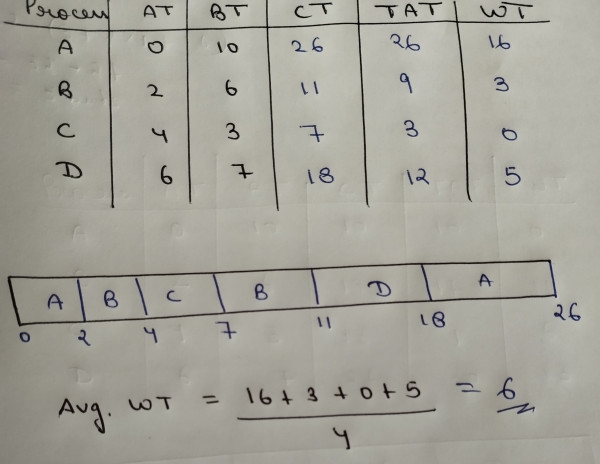 Process AT BT CT TAT WT
A 0 10 26 26 16
B 2 6 11 9 3
C 4 3 7 3 0
D 6 7 18 12 5
A B C B D A
0 2 4 7 11 18 26
Avg. WT = 16+3+0+5 = 6
4